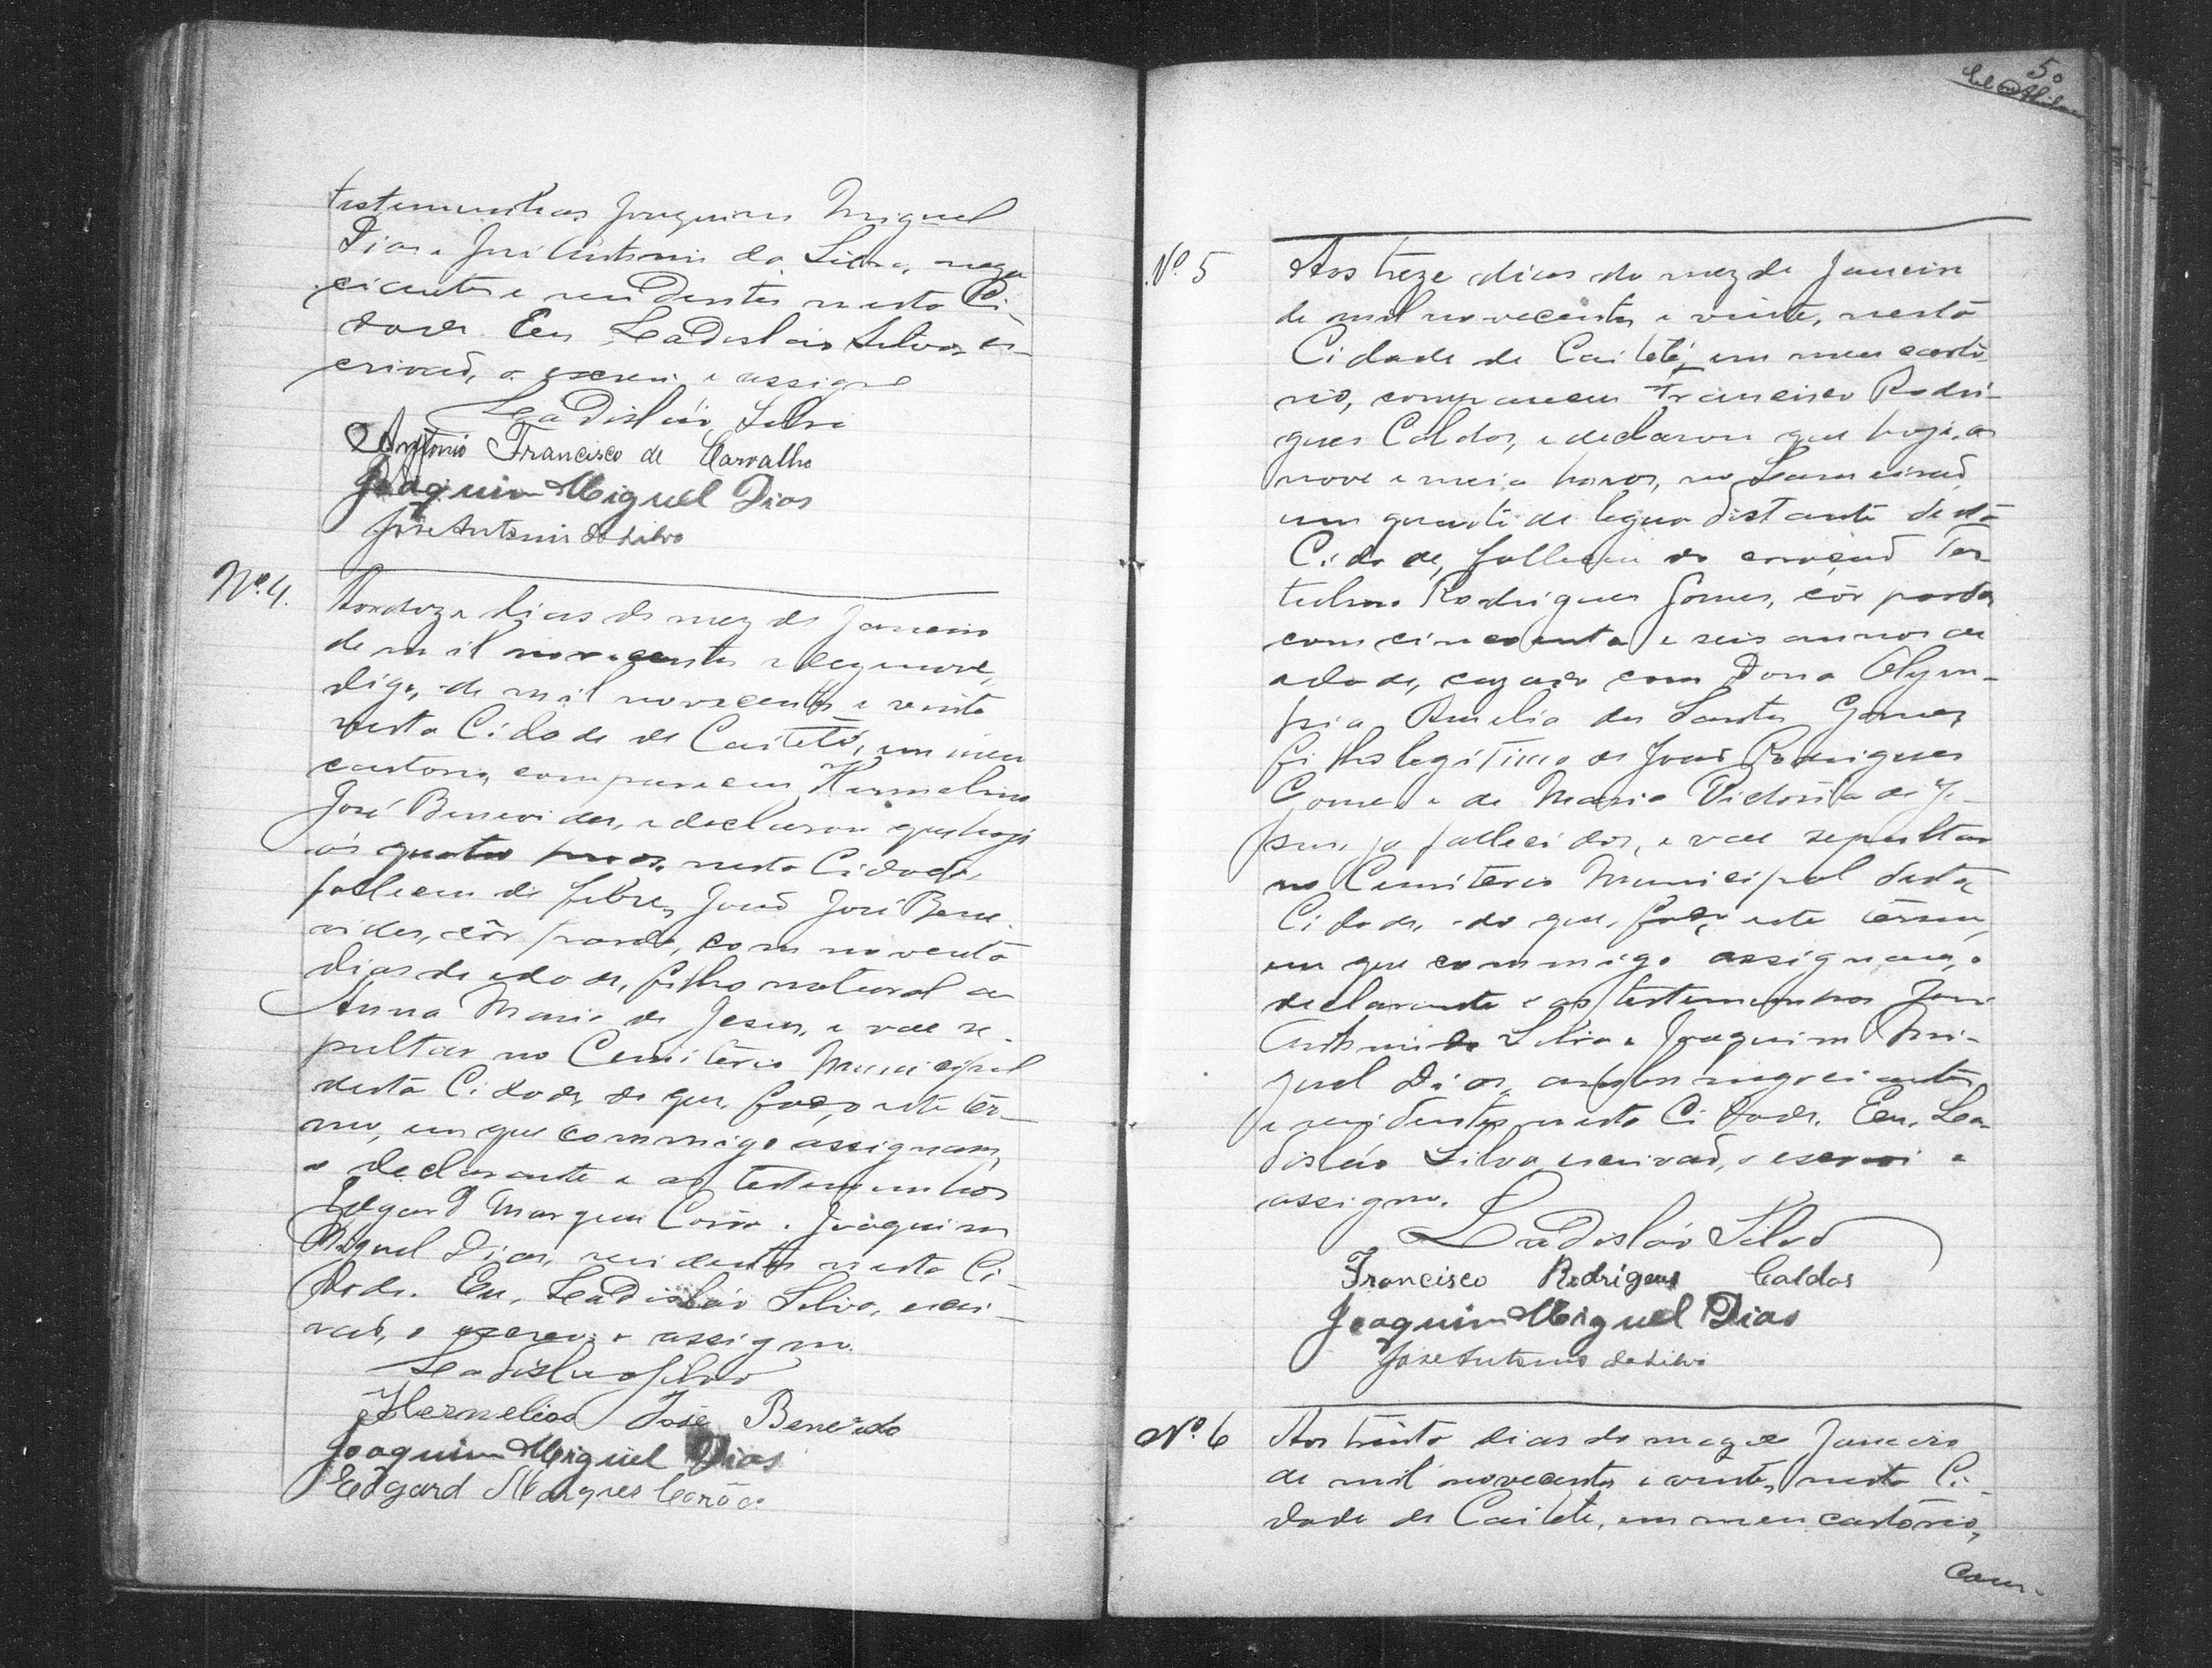 testemunhas Joaquim Miguel
Dias e José Antonio da Silva, nego
ciantes e residentes nesta Ci-
dade. Eu Ladisláo Silva, es-
crivaõ, o escrevi e assigno
Ladisláo Silva
Antonio Francisco de Carvalho
Joaquim Miguel Dias
José Antonio da Silva
Nº 4.
Aos doze dias do mez de Janeiro
de mil novecentos e dezenove,
digo, de mil novecentos e vinte
nesta Cidade de Caiteté, em meu
cartorio, compareceu Hermelino
José Benevides, e declarou que hoje
ás quatro horas, nesta Cidade,
falleceu de febre, Joaõ José Bene-
vides, côr parda, com noventa
dias de edade, filho natural de
Anna Maria de Jesus, e vae se-
pultar no Cemiterio Municipal
desta Cidade, do que, faço este ter-
mo, em que commigo assignam,
o declarante e as testemunhas
Edgard Marques Corôa e Joaquim
Miguel Dias, residentes nesta Ci-
dade. Eu, Ladisláo Silva, escri-
vaõ, o escrevi e assigno.
Ladisláo Silva
José Benevido
Joaquim Miguel Dias
Edgard Marques Corôa
50
Nº 5
Aos treze dias do mez de Janeiro
de mil novecentos e vinte, nesta
Cidade de Caiteté, em meu carto-
rio, compareceu Francisco Rodri-
gues Caldas, e declarou que hoje, as
nove e meia horas, no
um quarto de legua distante desta
Cidade, falleceu do coraçaõ Ter-
tulino Rodrigues Gomes, côr parda,
com cincoenta e seis annos de
edade, cazado com Dona Olym-
pia Amelia dos Santos Gomes,
filho legitimo de Joaõ Rodrigues
Gomes e de Maria Victoria de Je-
sus, ja fallecidos, e vae sepultar
no Cemiterio Municipal desta
Cidade, do que, faço este termo,
em que commigo assignam, o
declarante e as testemunhas José
Antonio da Silva e Joaquim Mi-
guel Dias, ambos negociantes
e residentes nesta Cidade. Eu, La-
disláo Silva escrivaõ, o escrevi e
assigno.
Ladisláo Silva
Francisco Rodrigues Caldas
Joaquim Miguel Dias
José Antonio da Silva
Nº 6
Aos trinta dias do mez de Janeiro
de mil novecentos e vinte, nesta Ci-
dade de Caiteté, em meu cartorio,
com-